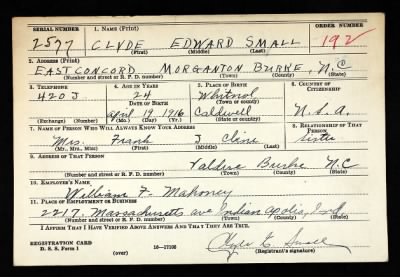 SERIAL NUMBER 1. NAME (Print) ORDER NUMBER
2577 CLYDE EDWARD SMALL 192
(First) (Middle) (Last)
2. ADDRESS (Print)
EAST CONCORD MORGANTON BURKE, N.C
(Number and street or R. F. D. number) (Town) (County) (State)
3. TELEPHONE 4. AGE IN YEARS 5. PLACE OF BIRTH 6. COUNTRY OF CITIZENSHIP
420J 24 Whitnol
DATE OF BIRTH (Town or county)
April 19 1916 Caldwell U.S.A.
(Exchange) (Number) (Mo.) (Day) (Yr.) (State or country)
7. NAME OF PERSON WHO WILL ALWAYS KNOW YOUR ADDRESS 8. RELATIONSHIP OF THAT PERSON
Mrs. Frank J Cline Sister
(Mr., Mrs., Miss) (First) (Middle) (Last)
9. ADDRESS OF THAT PERSON
Valdese Burke N.C
(Number and street or R. F. D. number) (Town) (County) (State)
10. EMPLOYER'S NAME
William F. Mahoney
11. PLACE OF EMPLOYMENT OR BUSINESS
2217. Massachusetts ave Indianapolis, Ind
(Number and street or R. F. D. number) (Town) (County) (State)
I AFFIRM THAT I HAVE VERIFIED ABOVE ANSWERS AND THAT THEY ARE TRUE.
REGISTRATION CARD
D. S. S. Form 1 16—17105 Clyde E Small
(Registrant's signature)